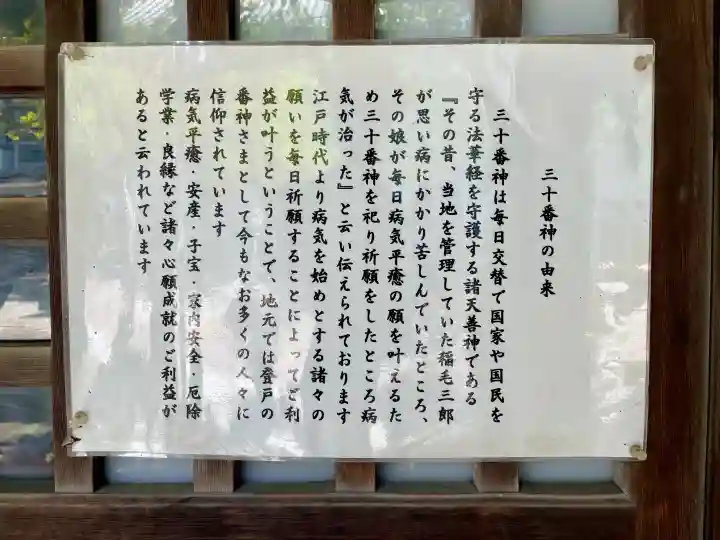 三十番神の由来
三十番神は毎日交替で国家や国民を
守る法華経を守護する諸天善神である
『その昔、当地を管理していた稲毛三郎
が思い病にかかり苦しんでいたところ、
その娘が毎日病気平癒の願を叶えるた
め三十番神を祀り祈願をしたところ病
気が治った』と云い伝えられております
江戸時代より病気を始めとする諸々の
願いを毎日祈願することによってご利
益が叶うということで、地元では登戸の
番神さまとして今もなお多くの人々に
信仰されています
病気平癒・安産・子宝・家内安全・厄除
学業・良縁など諸々心願成就のご利益が
あると云われています